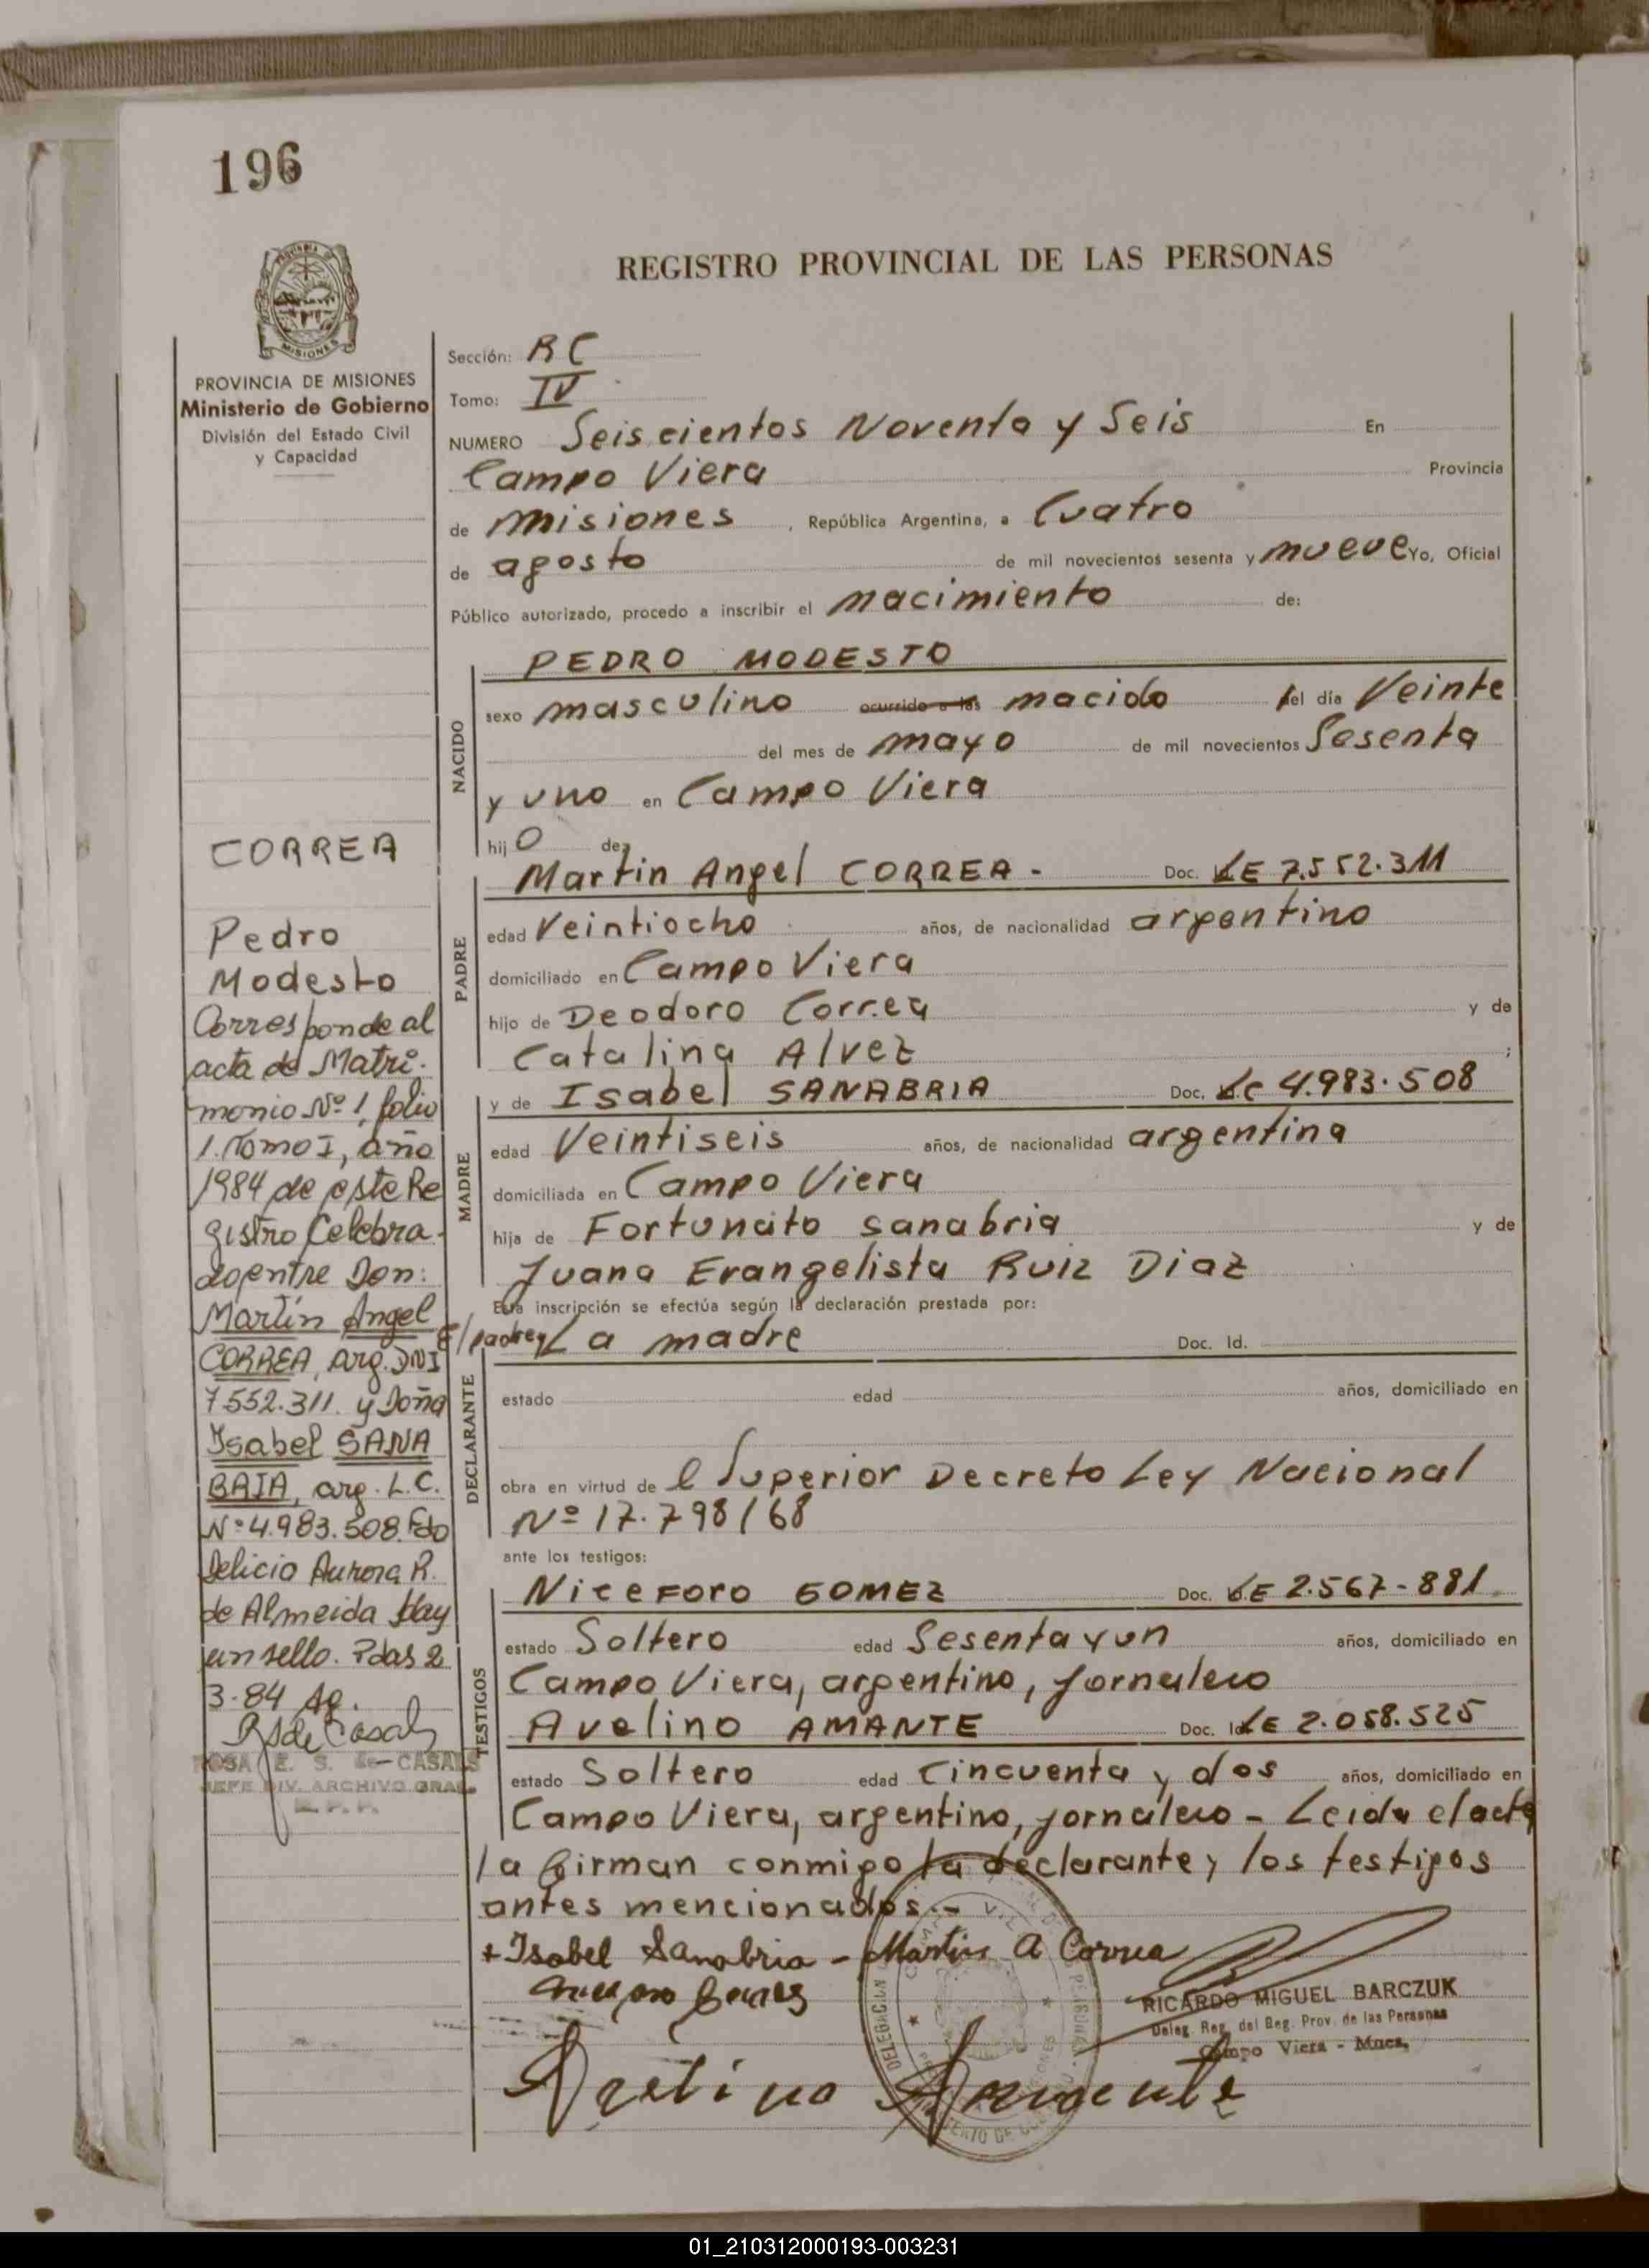 196
REGISTRO PROVINCIAL DE LAS PERSONAS
MISIONES
PROVINCIA DE MISIONES
Ministerio de Gobierno
División del Estado Civil
y Capacidad
Sección: RC
Tomo: IV
NUMERO Seiscientos Noventa y Seis En
Campo Viera Provincia
de misiones, República Argentina, a Cuatro
de agosto de mil novecientos sesenta y nueve Yo, Oficial
Público autorizado, procedo a inscribir el nacimiento de:
NACIDO
PEDRO MODESTO
sexo masculino ocurrido a las nacido el día Veinte
del mes de mayo de mil novecientos Sesenta
y uno en Campo Viera
hijo de
PADRE
Martin Angel CORREA - Doc. LE 7.552.311
edad Veintiocho años, de nacionalidad argentino
domiciliado en Campo Viera
hijo de Deodoro Correa y de
Catalina Alvez ;
MADRE
y de Isabel SANABRIA Doc. LC 4.983.508
edad Veintiseis años, de nacionalidad argentina
domiciliada en Campo Viera
hija de Fortunato Sanabria y de
Juana Evangelista Ruiz Diaz
Esta inscripción se efectúa según la declaración prestada por:
El padre y La madre Doc. Id.
DECLARANTE
estado edad años, domiciliado en
obra en virtud de l Superior Decreto Ley Nacional
Nº 17.798/68
ante los testigos:
TESTIGOS
Niceforo GOMEZ Doc. LE 2.567-881
estado Soltero edad Sesenta y un años, domiciliado en
Campo Viera, argentino, jornalero
Avelino AMANTE Doc. Id. LE 2.058.525
estado Soltero edad Cincuenta y dos años, domiciliado en
Campo Viera, argentino, jornalero - Leida el acta
la firman conmigo la declarante y los testigos
antes mencionados.-
+ Isabel Sanabria - Martin A Correa
RICARDO MIGUEL BARCZUK
Deleg. Reg. del Reg. Prov. de las Personas
Campo Viera - Mnes.
Avelino Amante
CORREA
Pedro
Modesto
Corresponde al
acta de Matri-
monio Nº 1, folio
1. Tomo I, año
1984 de este Re
gistro Celebra-
do entre Don:
Martín Angel
CORREA, arg. DNI
7552.311. y Doña
Isabel SANA
BRIA, arg. L.C.
Nº 4.983.508. Fdo
Delicio Aurora R.
de Almeida Hay
un sello. Pdas 2
3-84 Ag.
R S de Casals
ROSA E. S. de CASALS
JEFE DIV. ARCHIVO GRAL.
R. P. P.
01_210312000193-003231